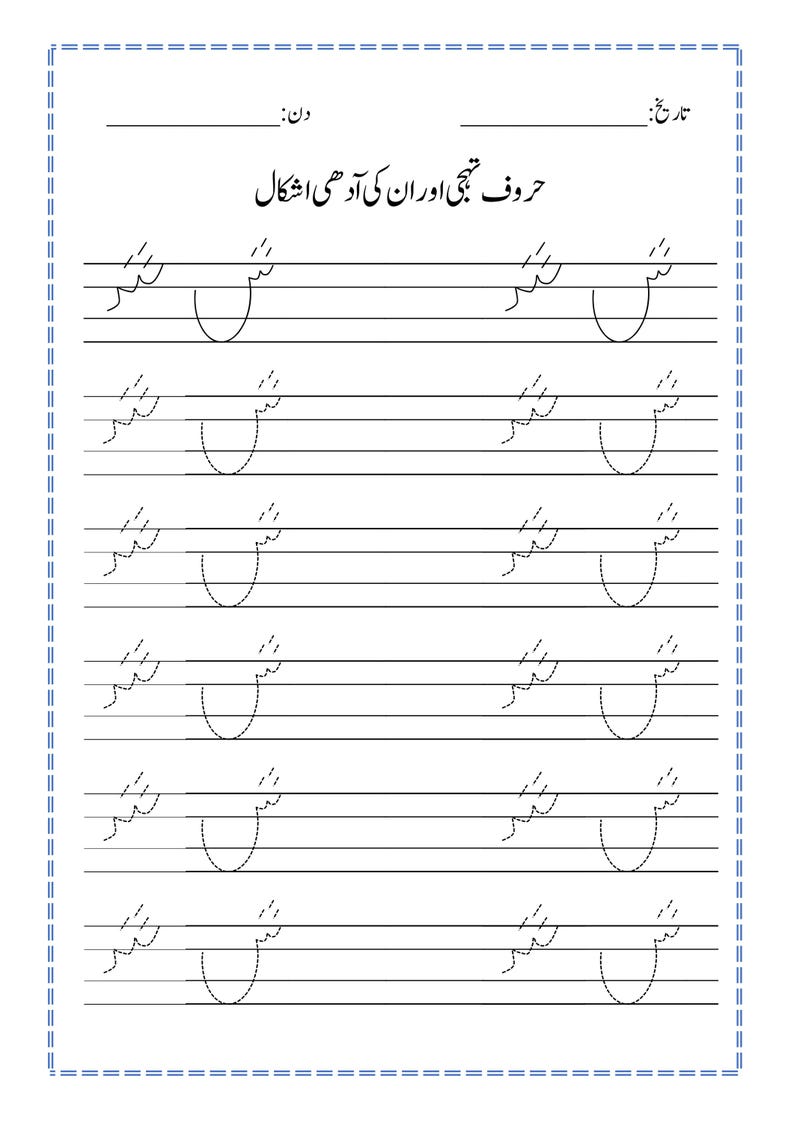 تاریخ:__________ دن:__________
حروف تہجی اور ان کی آدھی اشکال
ش شـ ش شـ
ش شـ ش شـ
ش شـ ش شـ
ش شـ ش شـ
ش شـ ش شـ
ش شـ ش شـ